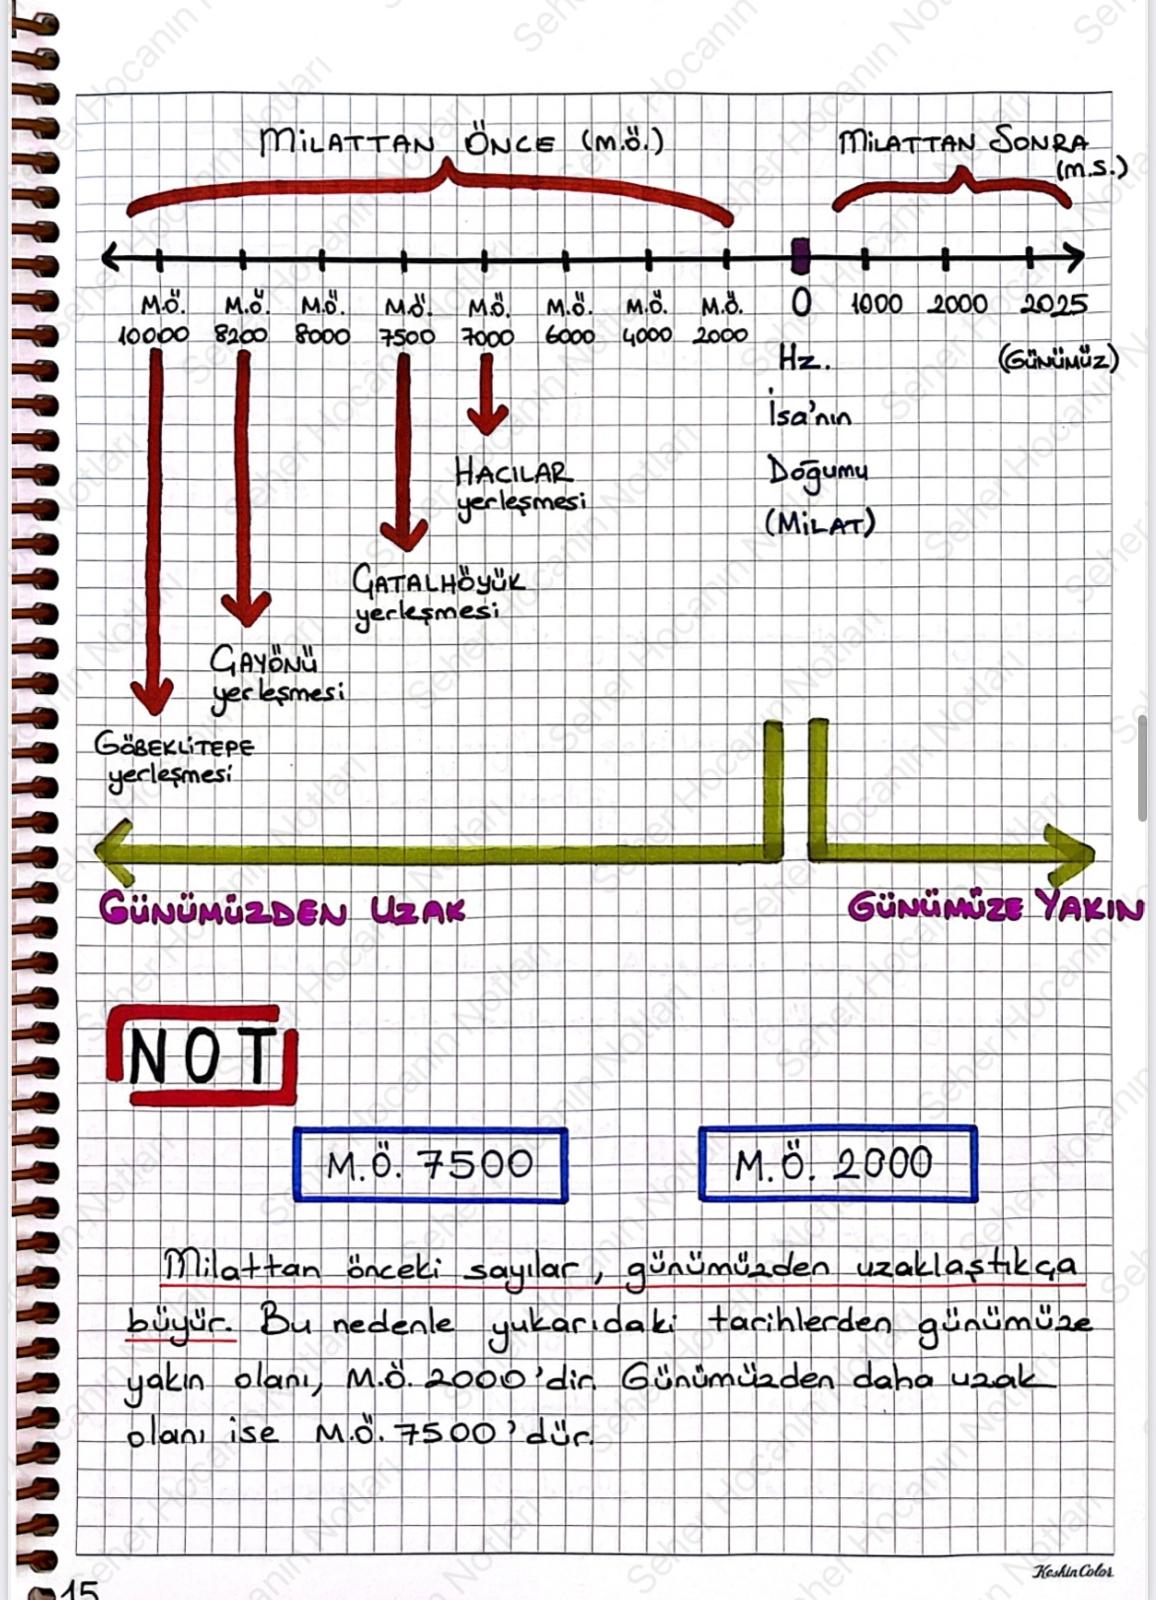 MİLATTAN ÖNCE (M.Ö.)
MİLATTAN SONRA
(M.S.)
M.Ö. M.Ö. M.Ö. M.Ö. M.Ö. M.Ö. M.Ö. M.Ö. 0 1000 2000 2025
10000 8200 8000 7500 7000 6000 4000 2000
Hz. (GÜNÜMÜZ)
İsa'nın
Doğumu
(MİLAT)
HACILAR
yerleşmesi
ÇATALHÖYÜK
yerleşmesi
ÇAYÖNÜ
yerleşmesi
GÖBEKLİTEPE
yerleşmesi
GÜNÜMÜZDEN UZAK
GÜNÜMÜZE YAKIN
NOT
M.Ö. 7500
M.Ö. 2000
Milattan önceki sayılar, günümüzden uzaklaştıkça
büyür. Bu nedenle yukarıdaki tarihlerden günümüze
yakın olanı, M.Ö. 2000'dir. Günümüzden daha uzak
olanı ise M.Ö. 7500'dür.
KeskinColor
15
Seher Hocanın Notları